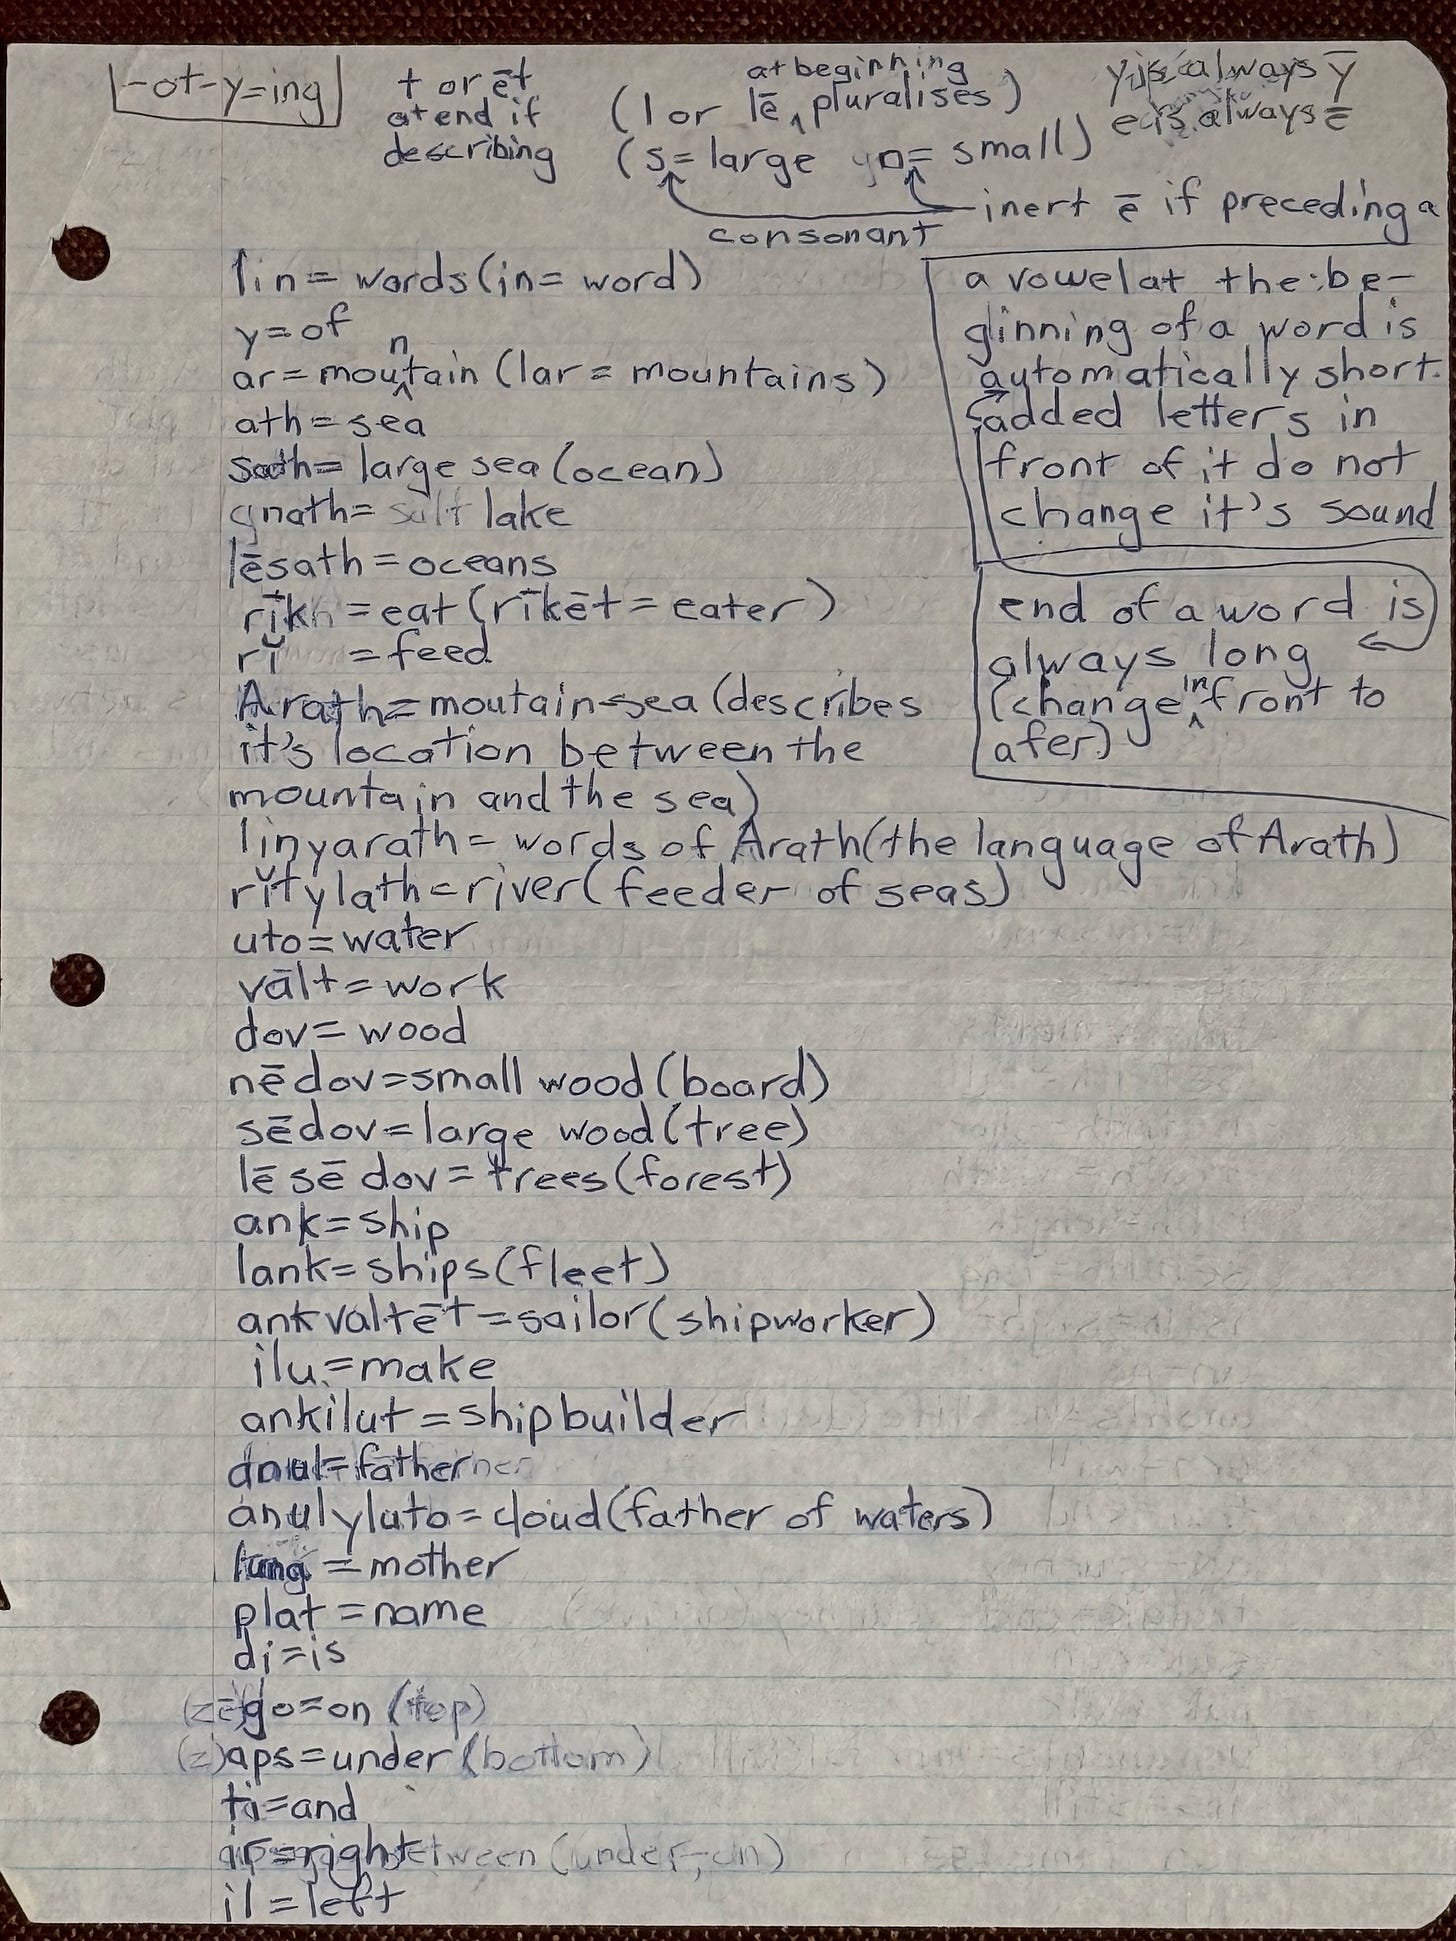 -ot-y=ing
t or ēt
at end if
describing
at beginning
(l or lē ^ pluralises)
(s= large n= small)
y is always ȳ
e is always ē
inert ē if preceding a
consonant
lin = words (in= word)
y=of
n
ar = mou^tain (lar = mountains)
ath = sea
sath= large sea (ocean)
nath= lake
lēsath = oceans
rīk = eat (rīkēt = eater)
rĭ = feed
Arath= moutain-sea (describes
it's location between the
mountain and the sea)
linyarath = words of Arath (the language of Arath)
rĭtylath = river (feeder of seas)
uto = water
vālt = work
dov = wood
nēdov = small wood (board)
sēdov = large wood (tree)
lē sē dov = trees (forest)
ank = ship
lank = ships (fleet)
ankvaltēt = sailor (shipworker)
ilu = make
ankilut = shipbuilder
anul = father
anulyluto = cloud (father of waters)
= mother
plat = name
di = is
(zē)go = on (top)
(z)aps = under (bottom)
ti = and
ir = right between (under, on)
il = left
a vowel at the be-
ginning of a word is
automatically short.
added letters in
front of it do not
change it's sound
end of a word is
always long
(change ^in front to
afer)